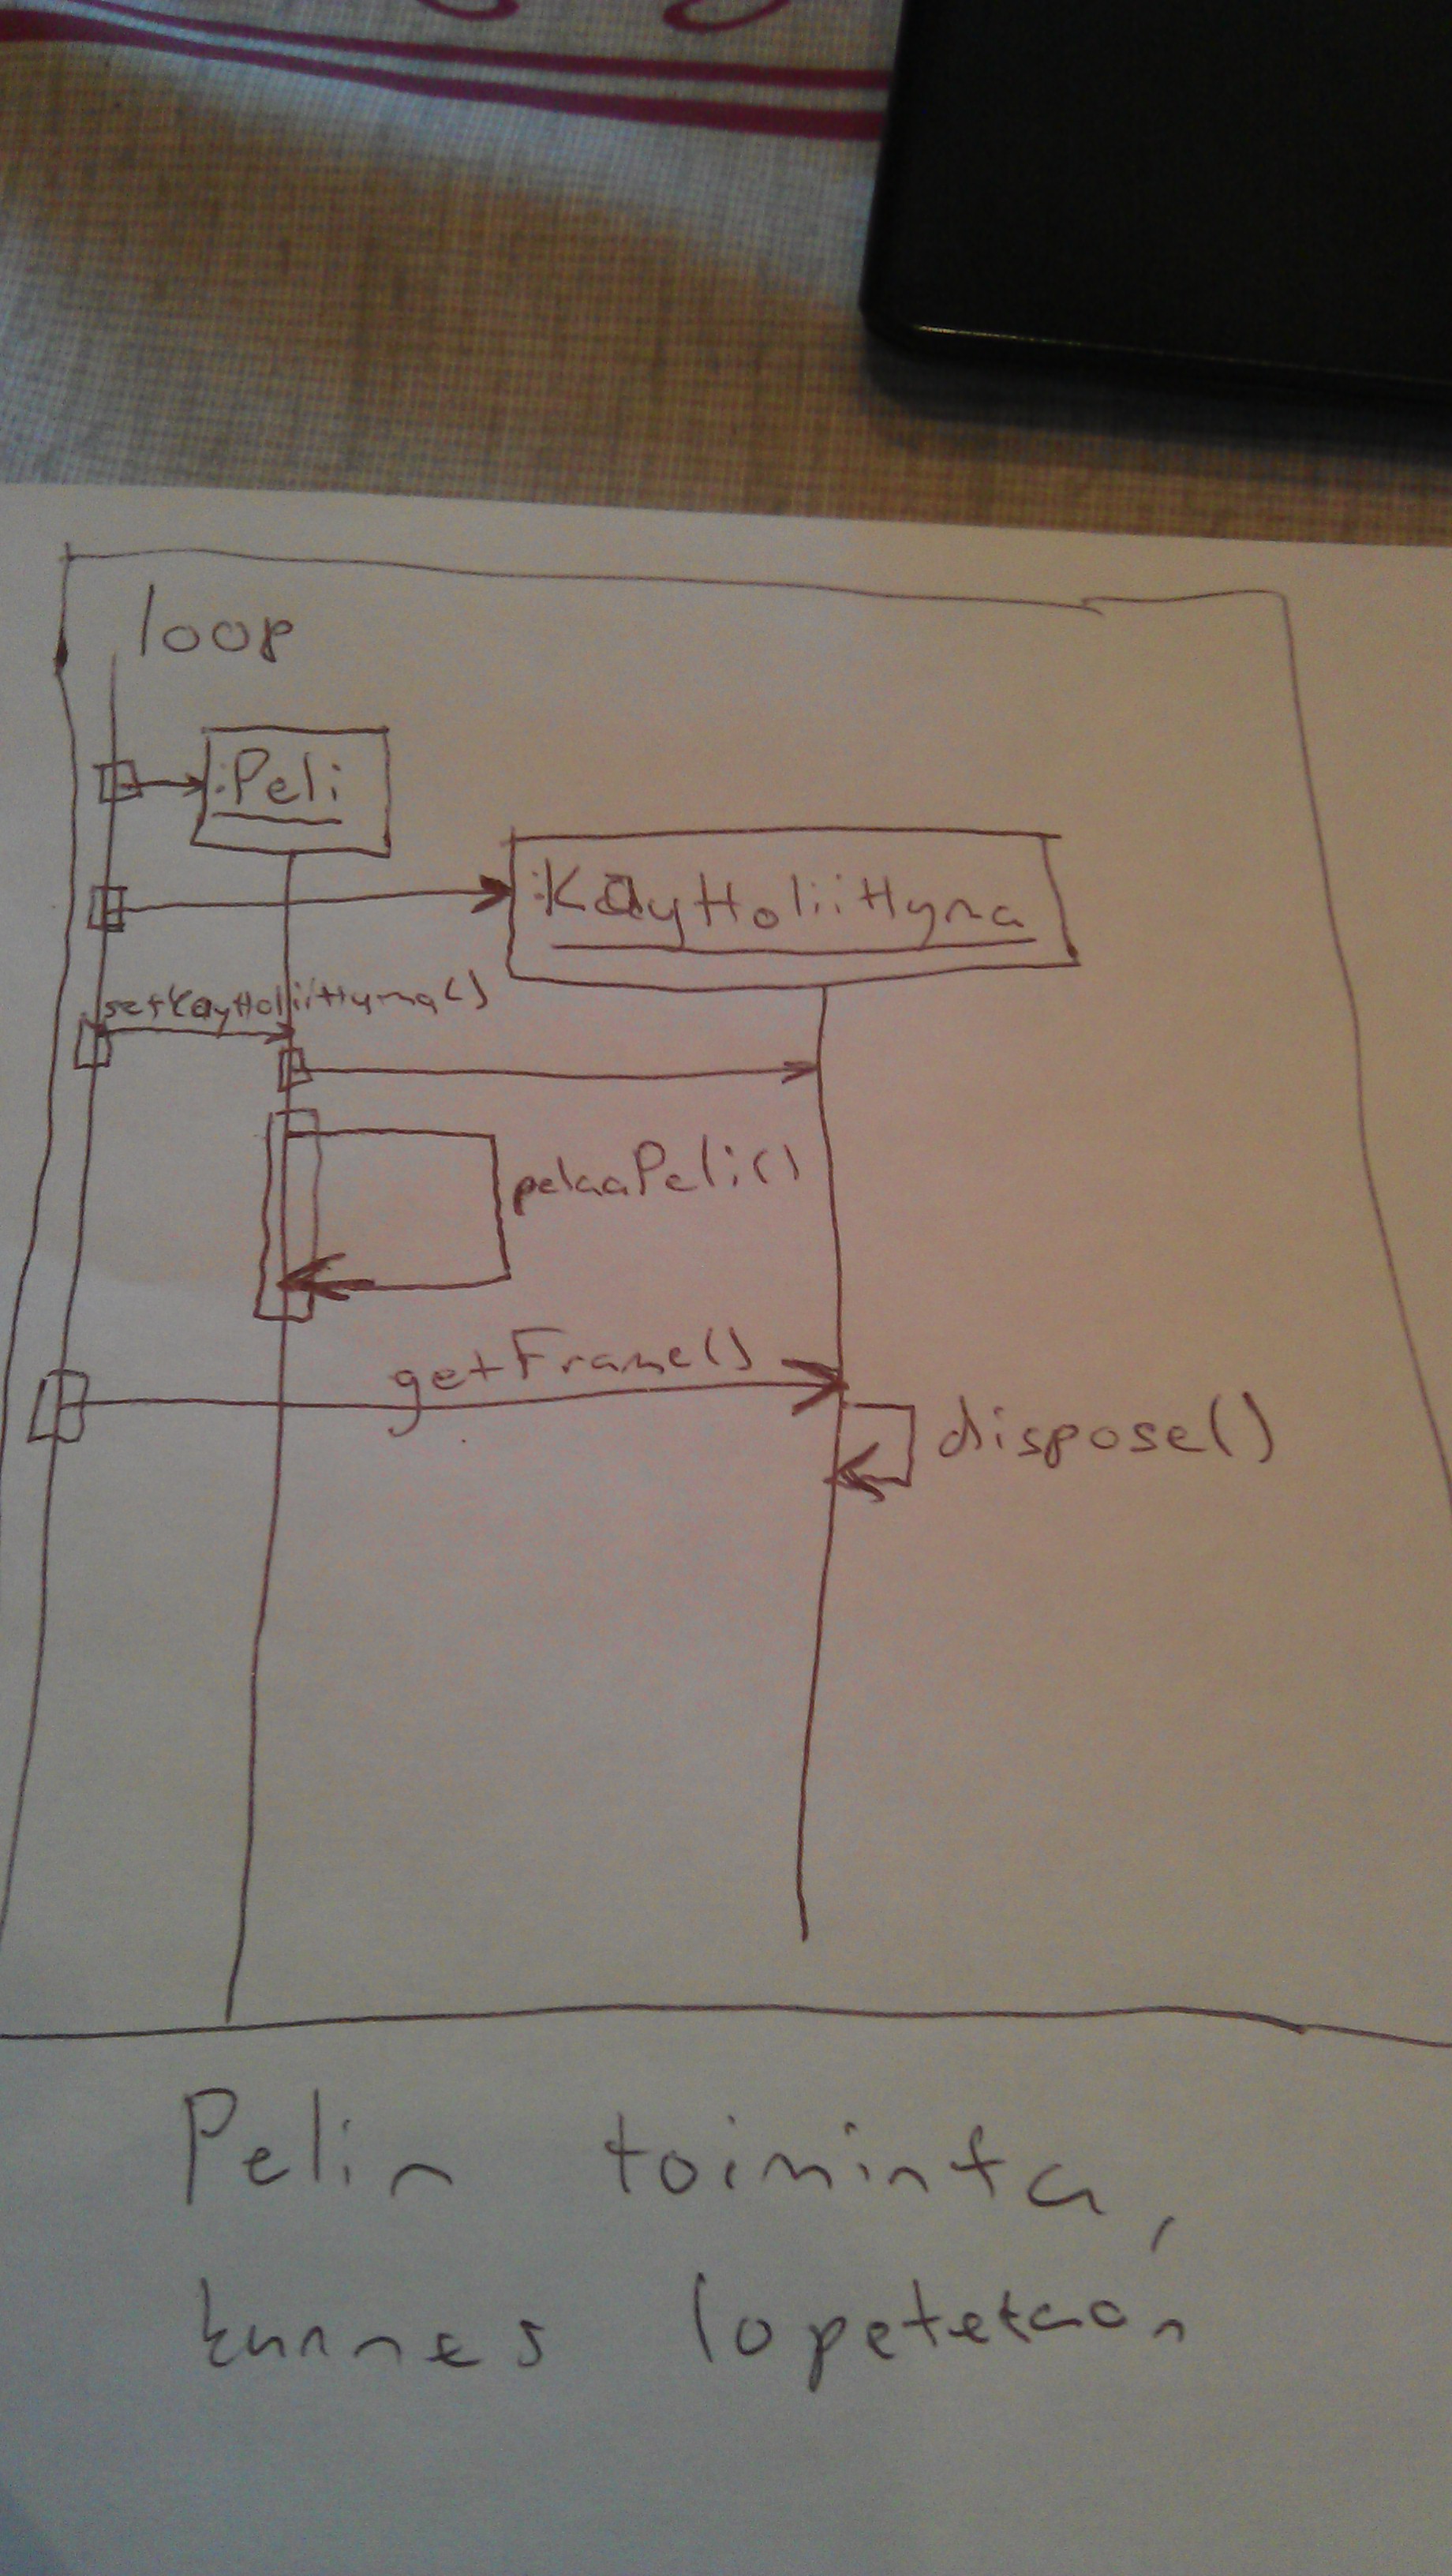 loop
:Peli
:Kayttoliittyma
setKayttoliittyma()
pelaaPeli()
getFrame()
dispose()
Pelin toiminta,
kunnes lopetetaan